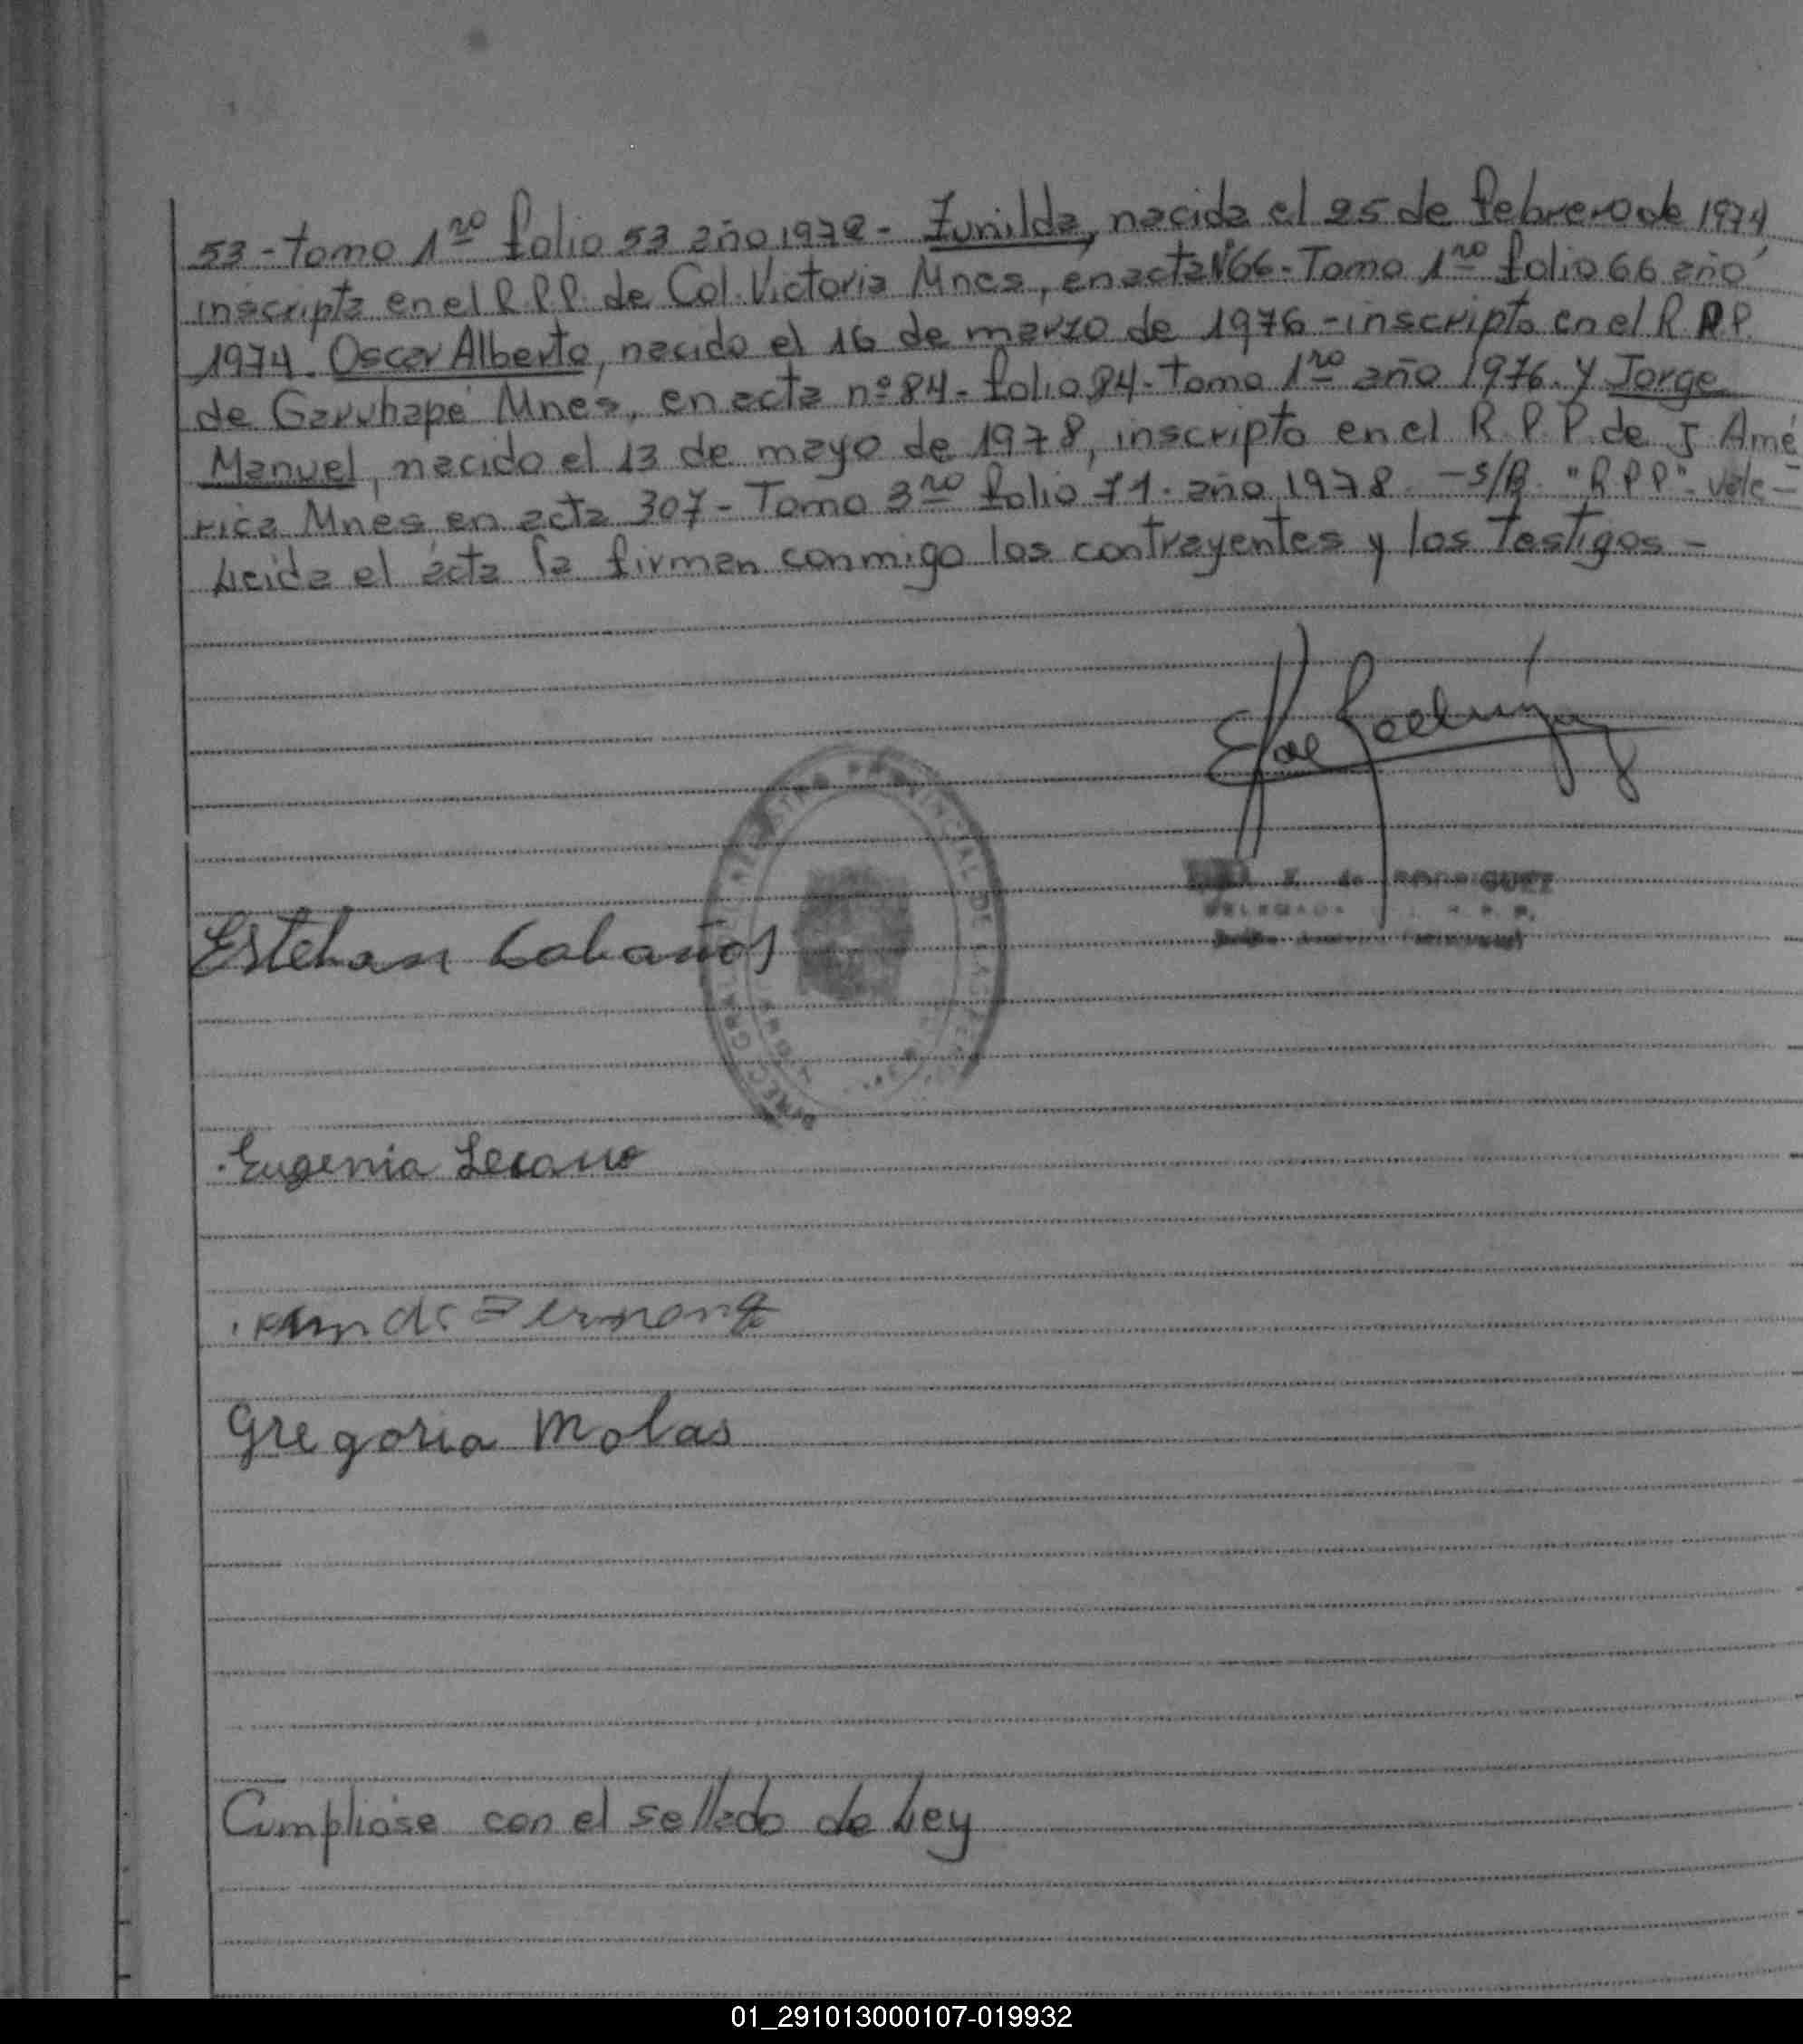 53 - Tomo 1ro folio 53 año 1972 - Zunilda, nacida el 25 de febrero de 1974,
inscripta en el R.P.P. de Col. Victoria Mnes, en acta Nº66 - Tomo 1ro folio 66 año
1974. Oscar Alberto, nacido el 16 de marzo de 1976 - inscripto en el R.P.P.
de Garuhapé Mnes, en acta nº 84 - folio 84 - Tomo 1ro año 1976. y Jorge
Manuel, nacido el 13 de mayo de 1978, inscripto en el R.P.P. de J. Amé
rica Mnes en acta 307 - Tomo 3ro folio 71. año 1978. - S/R. "RPP". Vale -
Leida el ácta la firman conmigo los contrayentes y los testigos -
de RODRIGUEZ
DELEGADA R. P. P.
Esteban Cabañas
Eugenia Lescano
Gregoria Molas
Cumplióse con el sellado de Ley
01_291013000107-019932